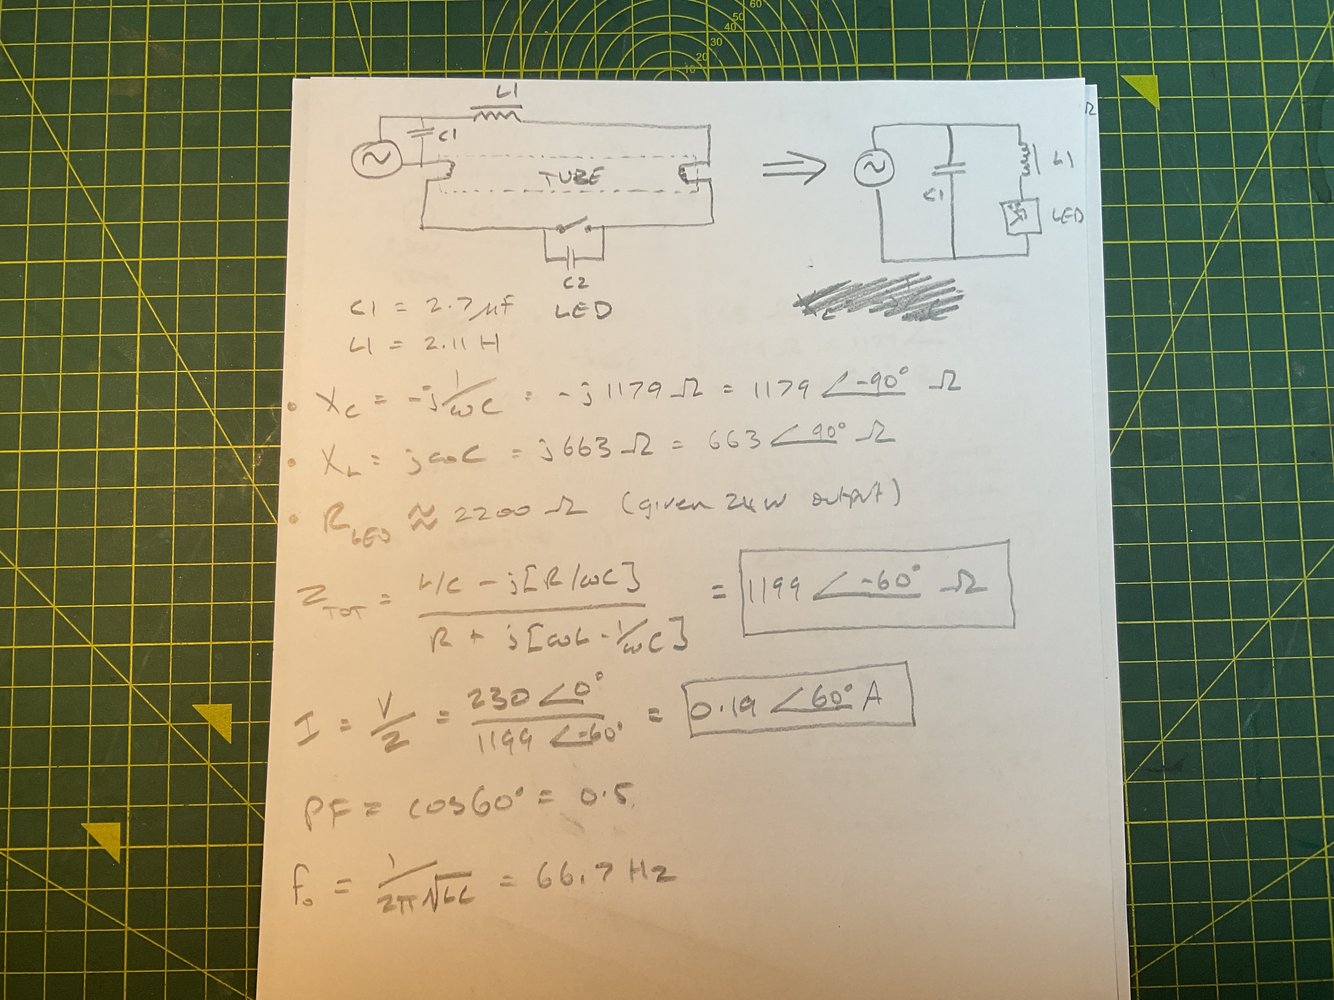 L1
C1
TUBE
C2
LED
⇒
C1
L1
LED
Ω
C1 = 2.7μF
L1 = 2.11 H
• XC = -j 1/ωC = -j 1179 Ω = 1179 ∠-90° Ω
• XL = jωL = j663 Ω = 663 ∠90° Ω
• RLED ≈ 2200 Ω (given 24W output)
ZTOT = L/C - j[R/ωC] / R + j[ωL - 1/ωC] = 1199 ∠-60° Ω
I = V/Z = 230 ∠0° / 1199 ∠-60° = 0.19 ∠60° A
PF = cos60° = 0.5
f₀ = 1/2π√LC = 66.7 Hz
60
50
40
30
20
10